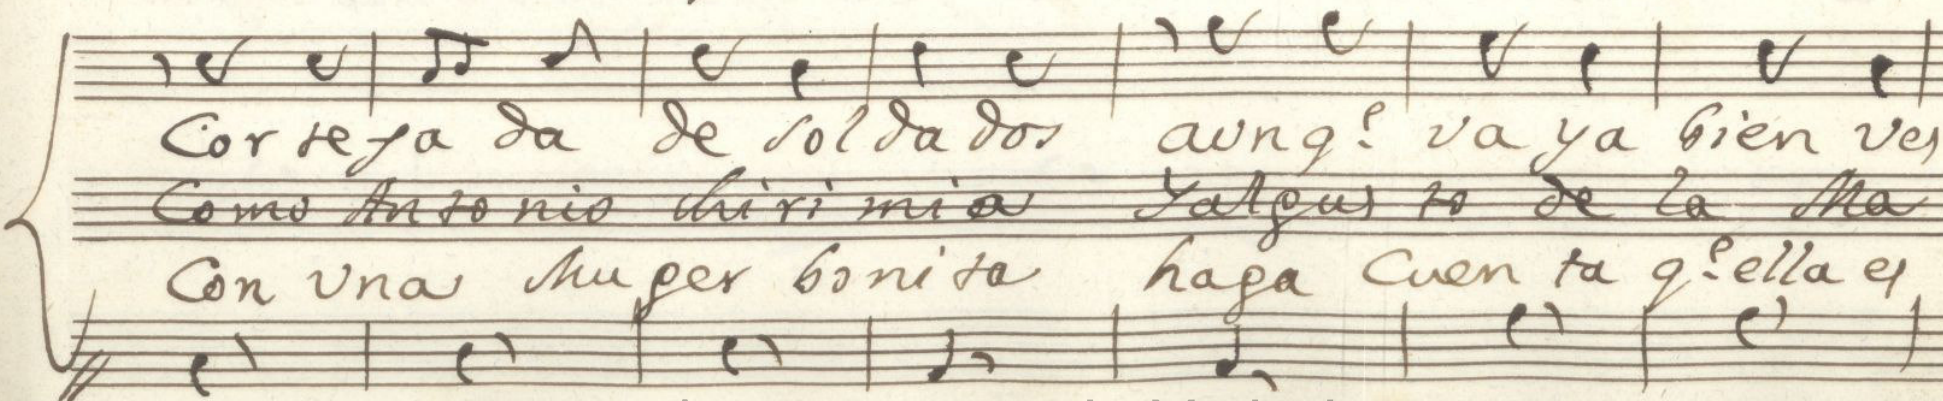 Cor te ja da de sol da dos aunq.e va ya bien ves
Como An to nio chi ri mi a Y al gus to de la Ma
Con una Mu ger bo ni ta haga Cuen ta q.e ella es